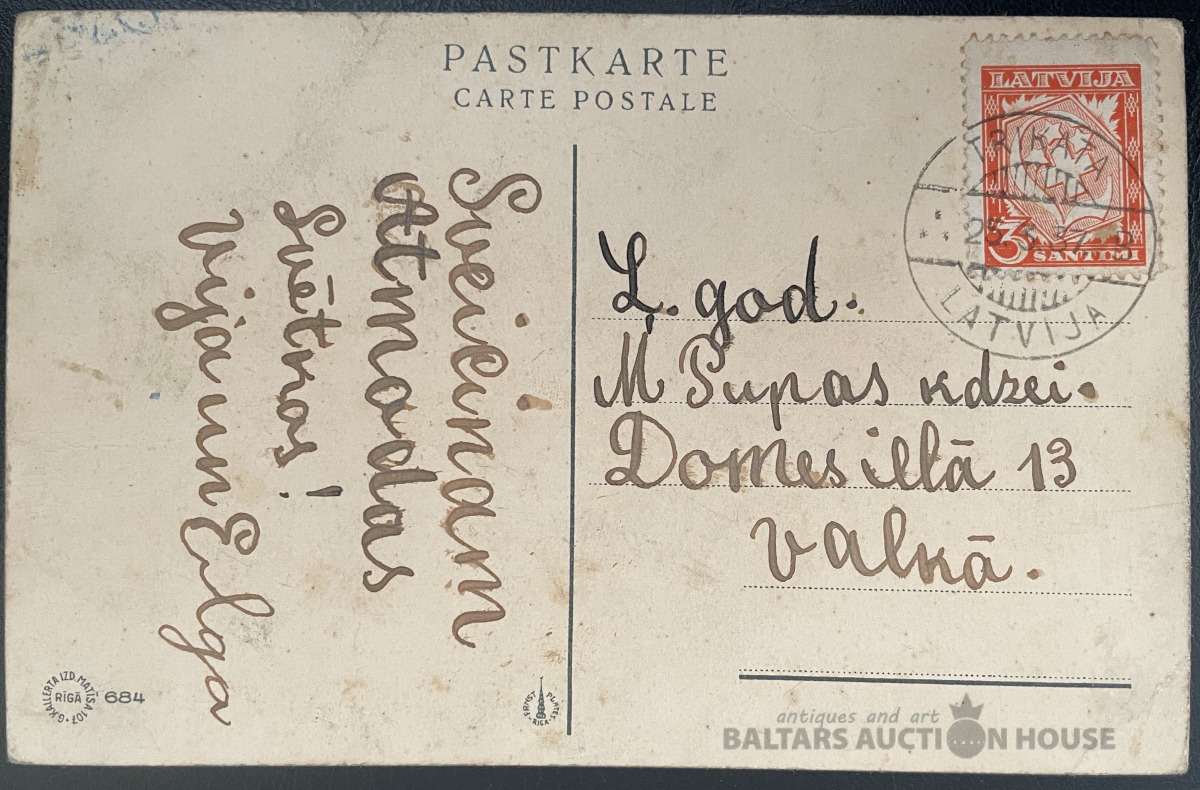 PASTKARTE
CARTE POSTALE
LATVIJA
3
SANTIMI
TRIKATA
25. 5. 37
LATVIJA
Sveicinam
Atmodas
Svētkos!
Vija un Elga
Ļ. god.
M Pupas kdzei.
Domes ielā 13
Valkā.
G. KAILLERTA IZD. MATĪSA 107
RĪGĀ
684
ERNST PLATES
RIGA
antiques and art
BALTARS AUCTION HOUSE